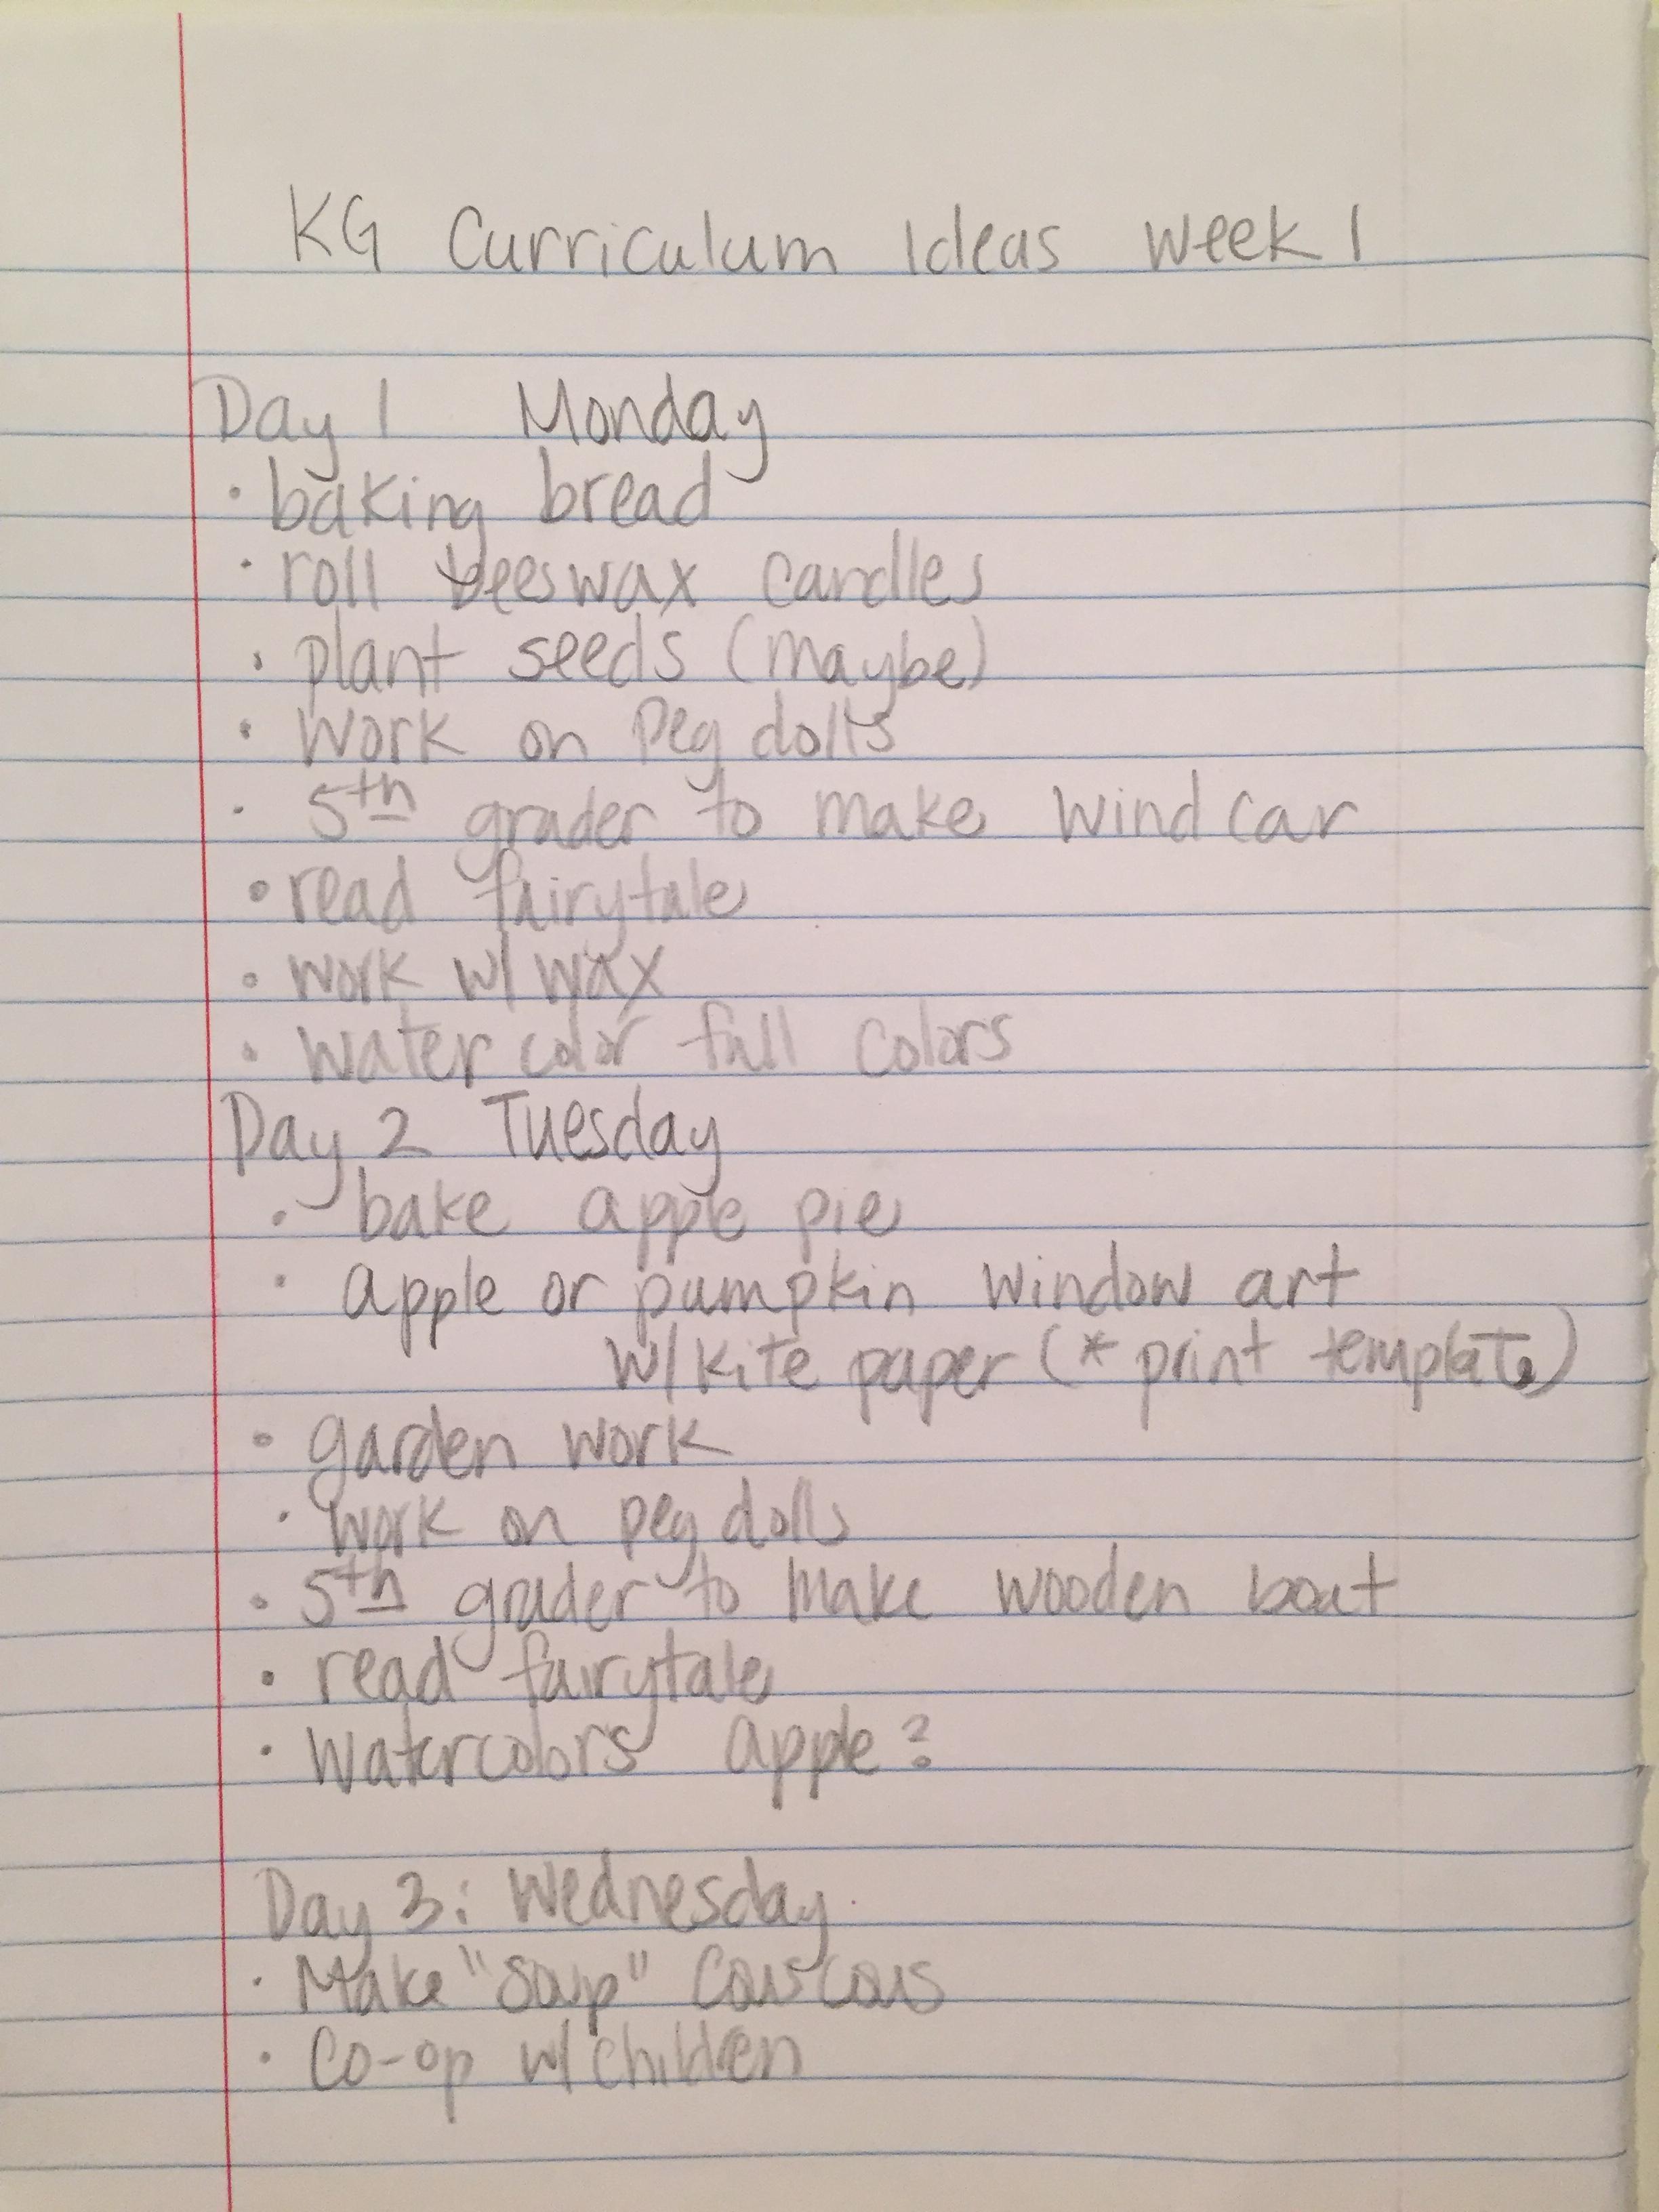 KG Curriculum Ideas Week 1
Day 1 Monday
· baking bread
· roll beeswax candles
· plant seeds (maybe)
· Work on Peg dolls
· 5th grader to make wind car
· read fairytale
· work w/ wax
· water color fall colors
Day 2 Tuesday
· bake apple pie
· apple or pumpkin window art
w/ kite paper (* print template)
· garden work
· work on peg dolls
· 5th grader to make wooden boat
· read fairytale
· Watercolors apple?
Day 3: Wednesday
· Make "soup" Couscous
· Co-op w/ children